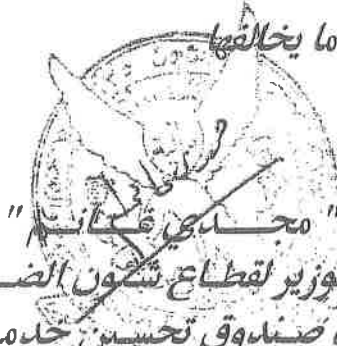 ما يخالفها
" مجدي غانم "
وزير لقطاع شئون الضـ
صندوق تحسين خدمـ